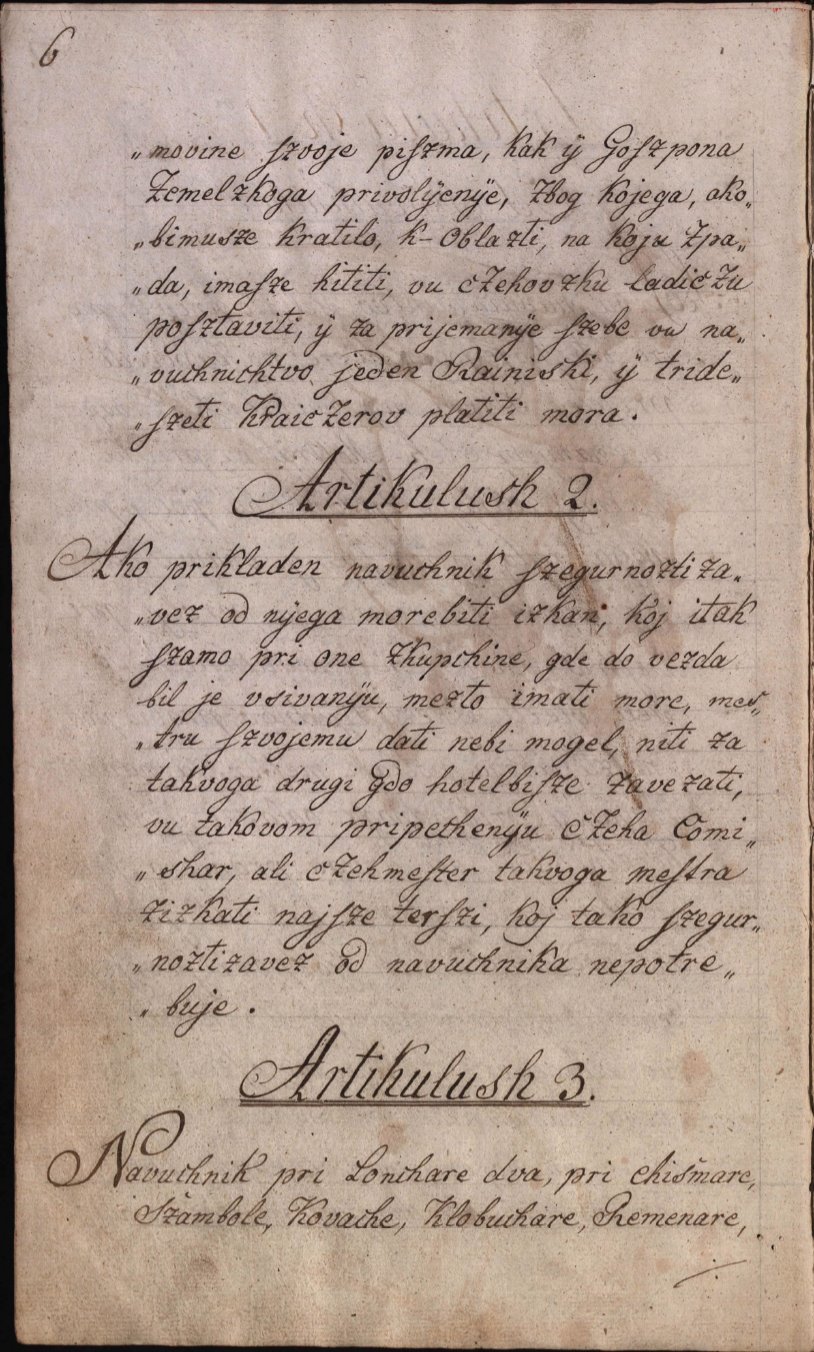 6
„movine szvoje piszma, kak ÿ Goszpona
Zemelzkoga privolÿenÿe, zbog kojega, ako„
„bimusze kratilo, k-oblazti, na koju zpa„
„da, imasze hititi, vu cZehovzku ladicZu
posztaviti, ÿ za prijemanÿe szebe vu na„
„vuchnichtvo jeden Rainiski, ÿ tride„
„szeti KraicZerov platiti mora.
Artikulush 2.
Ako prikladen navuchnik szegurnozti za„
„vez od nÿega morebiti izkan, koj itak
szamo pri one zkupchine, gde do vezda
bil je vsivanÿu, mezto imati more, mes„
„tru szvojemu dati nebi mogel, niti za
takvoga drugi gdo hotelbisze zavezati,
vu takovom pripethenÿu cZeha Comi„
„shar, ali cZehmester takvoga mestra
zizkati najsze terszi, koj tako szegur„
„noztizavez od navuchnika nepotre„
„buje.
Artikulush 3.
Navuchnik pri Lonchare dva, pri chismare,
Szambole, Kovache, Klobuchare, Remenare,